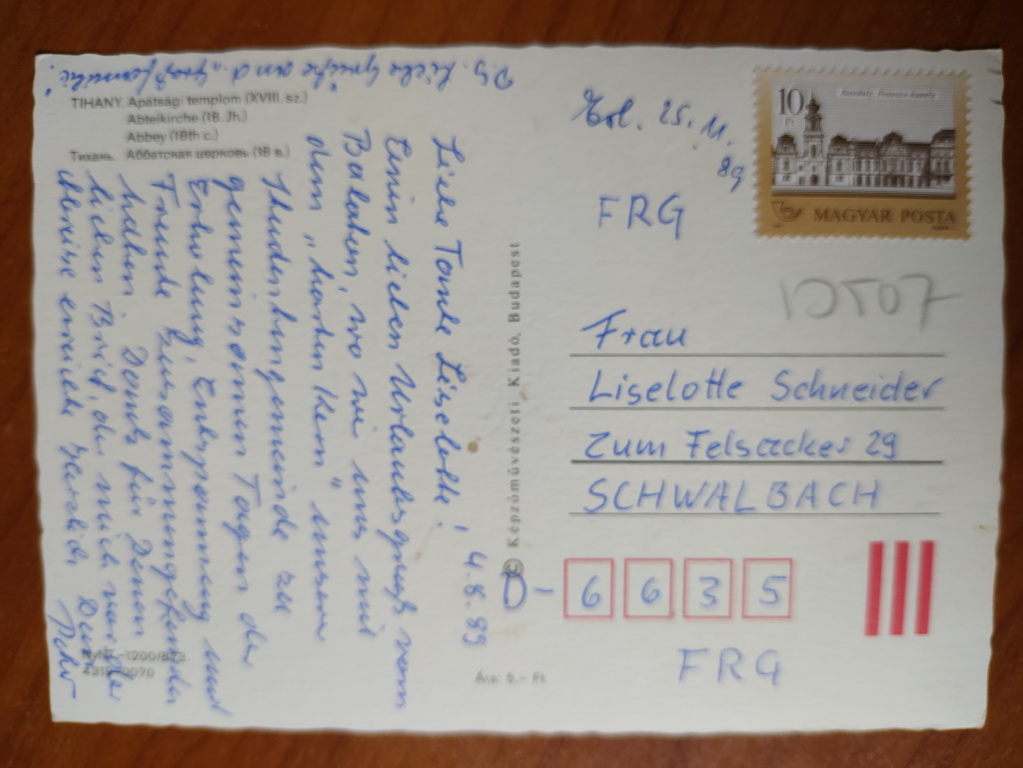 P.S. Liebe Grüße an d. „Großfamilie".
TIHANY. Apátsági templom (XVIII. sz.)
Abteikirche (18. Jh.)
Abbey (18th c.)
Тихань. Аббатская церковь (18 в.)
4.8.89
Liebe Tante Liselotte!
Einen lieben Urlaubsgruß vom
Balaton, wo wir uns mit
dem „harten Kern" unserer
Studentengemeinde zu
gemeinsamen Tagen der
Erholung, Entspannung und
Freude zusammengefunden
haben. Dank für Deinen
lieben Brief, der mich vor der
Abreise erreichte. Herzlich Dein
Peter
4319 0070
© Képzőművészeti Kiadó, Budapest
25. 11.
89
10 Ft
MAGYAR POSTA
FRG
12507
Frau
Liselotte Schneider
Zum Felsacker 29
SCHWALBACH
D- 6 6 3 5
FRG